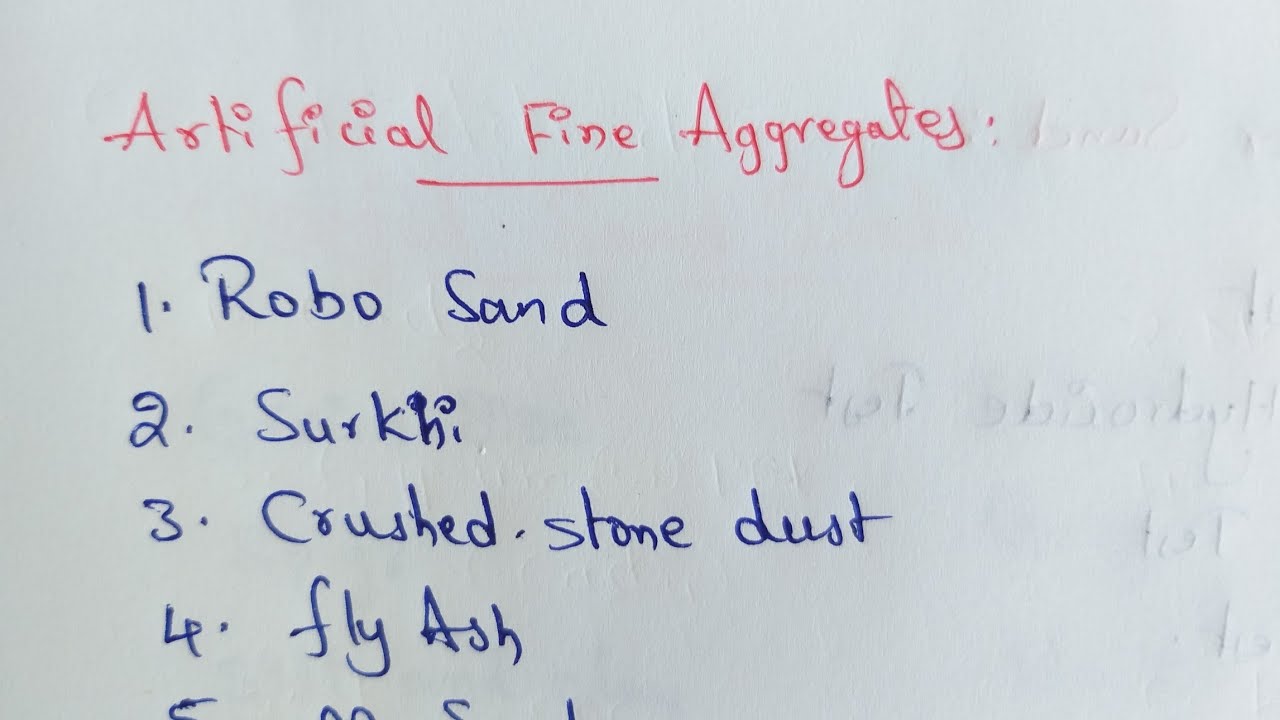 Artificial Fine Aggregates:
1. Robo Sand
2. Surkhi
3. Crushed. stone dust
4. fly Ash
5.